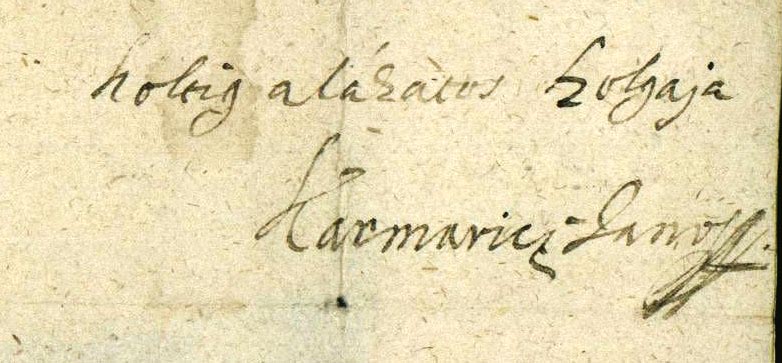 holtig alázatos szolgaja
Harmaricz Janoss